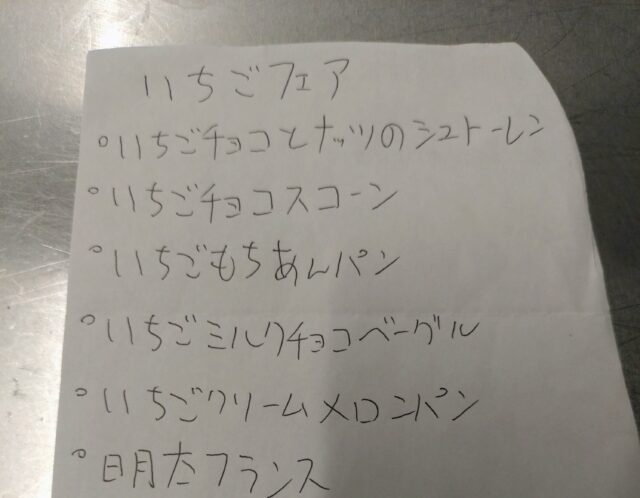 いちごフェア
°いちごチョコとナッツのシュトーレン
°いちごチョコスコーン
°いちごもちあんパン
°いちごミルクチョコベーグル
°いちごクリームメロンパン
°明太フランス